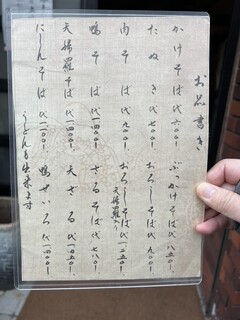 お品書き
かけそば 代六〇〇
ぶっかけそば 代八五〇
たぬき 代七〇〇
おろしそば 代九〇〇
肉そば 代九〇〇
おろしそば 天婦羅入り 代一二五〇
鴨そば 代一四〇〇
ざるそば 代七八〇
天婦羅そば 代一四〇〇
天ざる 代一四五〇
にしんそば 代一二〇〇
鴨せいろ 代一四〇〇
うどんも出来ます